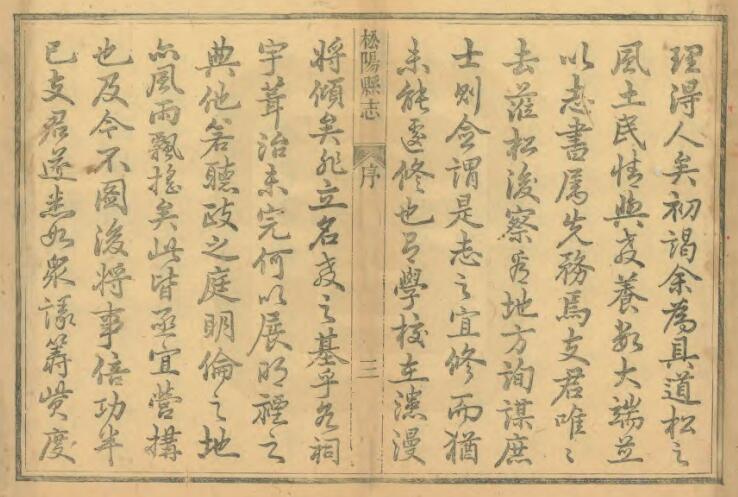 理得人矣初謁余為具道松之
風土民情與夫養教大端並
以志書属先務焉支君唯〻
去蒞松後察看地方詢謀庶
士则佥謂是志之宜修而猶
未能遽修也有學校在漶漫
松陽縣志
序
三
将傾矣非立名教之基乎若祠
宇葺治未完何以展明禋之
典他若聽政之庭明倫之地
亦風雨飄搖矣此皆亟宜營構
也及今不圖後将事倍功半
已支君遂悉如衆議籌貲度